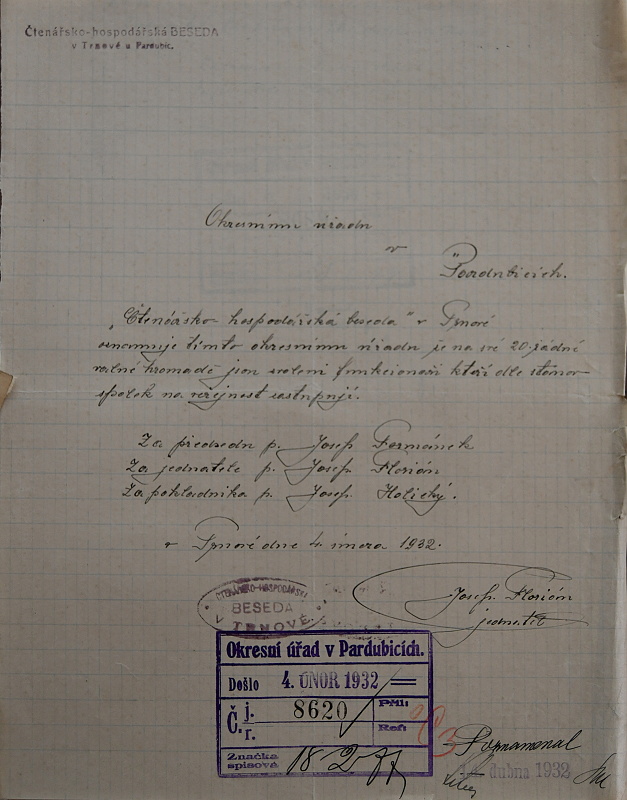 Čtenářsko-hospodářská BESEDA
v Trnové u Pardubic.
Okresnímu úřadu
v
Pardubicích.
„Čtenářsko hospodářská beseda" v Trnové
oznamuje tímto okresnímu úřadu že na své 20. řádné
valné hromadě jsou zvoleni funkcionáři kteří dle stanov
spolek na veřejnost zastupují.
Za předsedu p. Josef Formánek
Za jednatele p. Josef Florián
Za pokladníka p. Josef Holický.
v Trnové dne 4. února 1932.
Josef Florián
jednatel
ČTENÁŘSKO-HOSPODÁŘSKÁ
BESEDA
V TRNOVÉ
Okresní úřad v Pardubicích.
Došlo 4. ÚNOR 1932
Č. j. 8620
r.
Příl:
Ref:
Značka
spisová 18
Poznamenal
dubna 1932